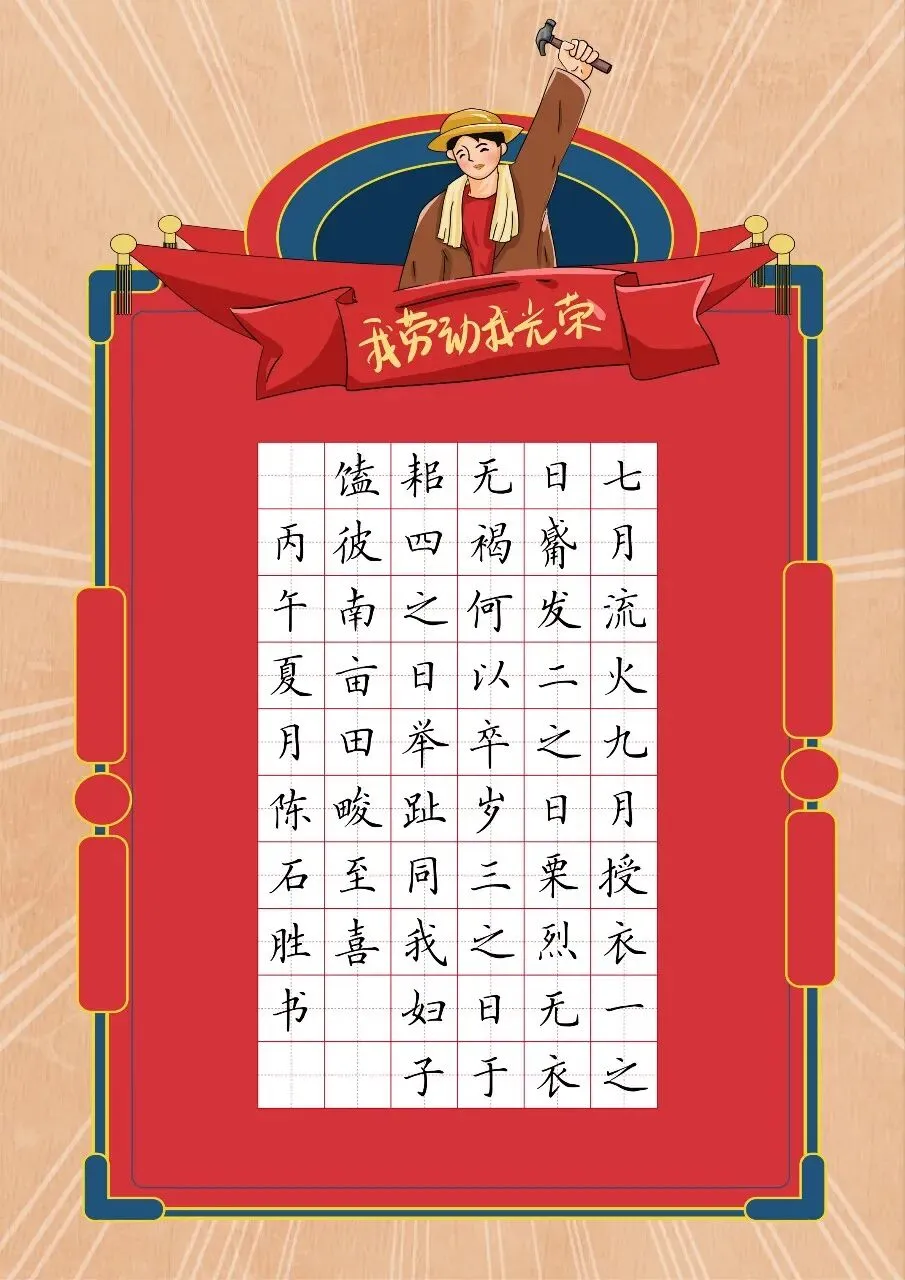 我劳动我光荣
七月流火九月授衣一之
日觱发二之日栗烈无衣
无褐何以卒岁三之日于
耜四之日举趾同我妇子
馌彼南亩田畯至喜
丙午夏月陈石胜书